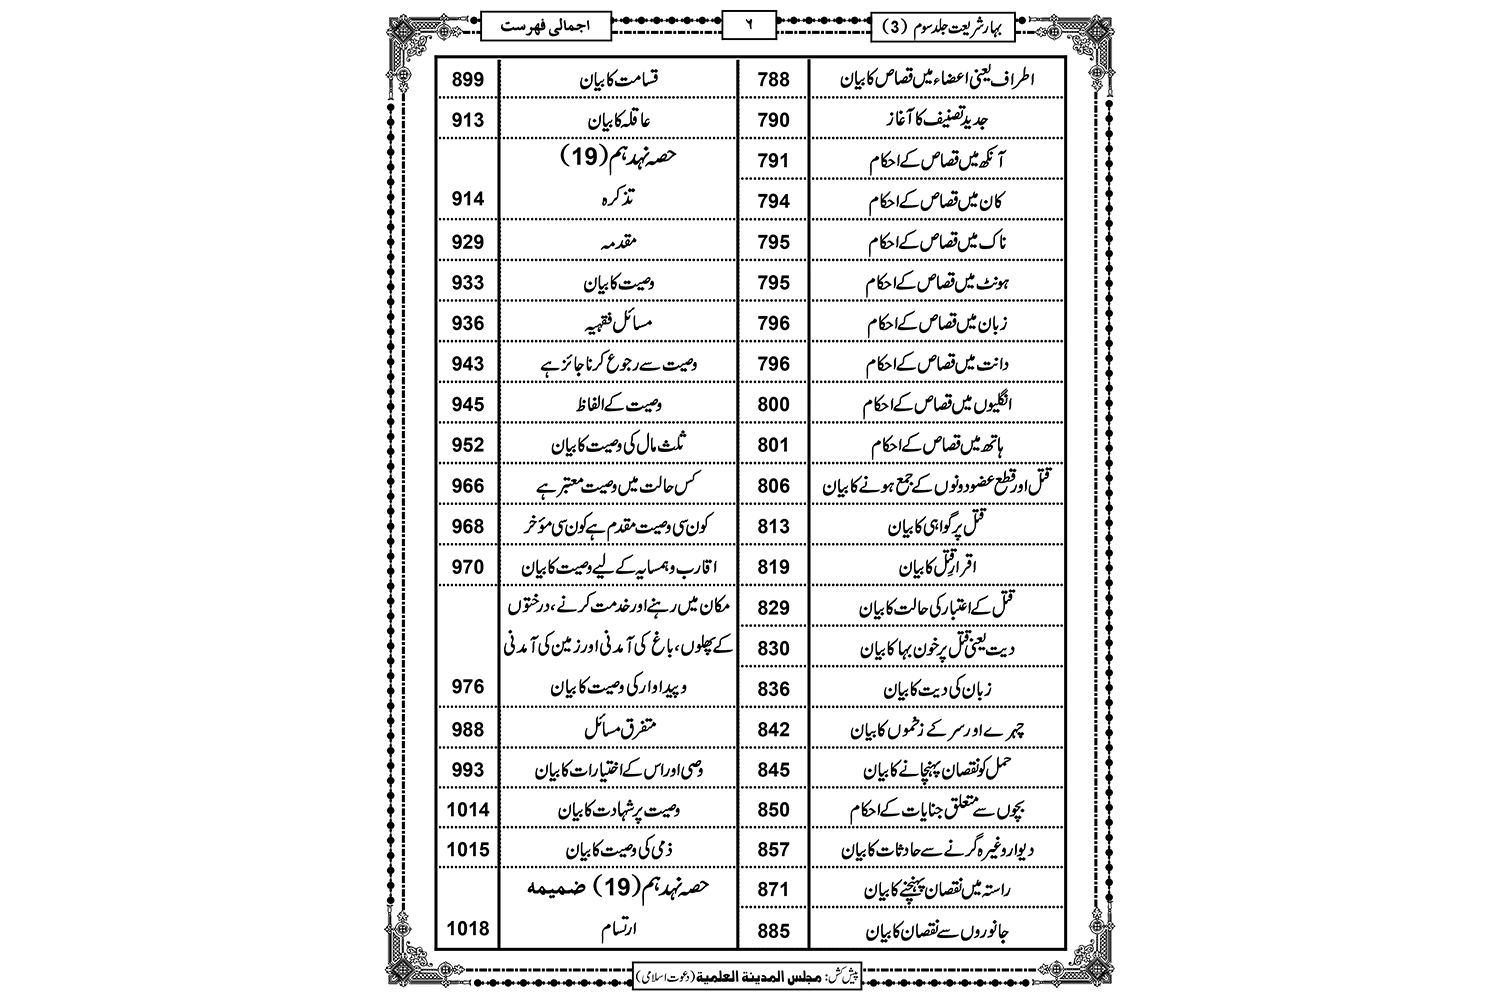 بہار شریعت جلد سوم (3)
۶
اجمالی فهرست
اطراف یعنی اعضاء میں قصاص کا بیان 788
جدید تصنیف کا آغاز 790
آنکھ میں قصاص کے احکام 791
کان میں قصاص کے احکام 794
ناک میں قصاص کے احکام 795
ہونٹ میں قصاص کے احکام 795
زبان میں قصاص کے احکام 796
دانت میں قصاص کے احکام 796
انگلیوں میں قصاص کے احکام 800
ہاتھ میں قصاص کے احکام 801
قتل اور قطع عضو دونوں کے جمع ہونے کا بیان 806
قتل پر گواہی کا بیان 813
اقرارِ قتل کا بیان 819
قتل کے اعتبار کی حالت کا بیان 829
دیت یعنی قتل پر خون بہا کا بیان 830
زبان کی دیت کا بیان 836
چہرے اور سر کے زخموں کا بیان 842
حمل کو نقصان پہنچانے کا بیان 845
بچوں سے متعلق جنایات کے احکام 850
دیوار وغیرہ گرنے سے حادثات کا بیان 857
راستہ میں نقصان پہنچنے کا بیان 871
جانوروں سے نقصان کا بیان 885
قسامت کا بیان 899
عاقلہ کا بیان 913
حصہ نہدہم (19)
تذکرہ 914
مقدمہ 929
وصیت کا بیان 933
مسائل فقہیہ 936
وصیت سے رجوع کرنا جائز ہے 943
وصیت کے الفاظ 945
ثلث مال کی وصیت کا بیان 952
کس حالت میں وصیت معتبر ہے 966
کون سی وصیت مقدم ہے کون سی مؤخر 968
اقارب و ہمسایہ کے لیے وصیت کا بیان 970
مکان میں رہنے اور خدمت کرنے، درختوں
کے پھلوں، باغ کی آمدنی اور زمین کی آمدنی
و پیداوار کی وصیت کا بیان 976
متفرق مسائل 988
وصی اور اس کے اختیارات کا بیان 993
وصیت پر شہادت کا بیان 1014
ذمی کی وصیت کا بیان 1015
حصہ نہدہم (19) ضمیمه
ارتسام 1018
پیش کش: مجلس المدینة العلمیة (دعوت اسلامی)